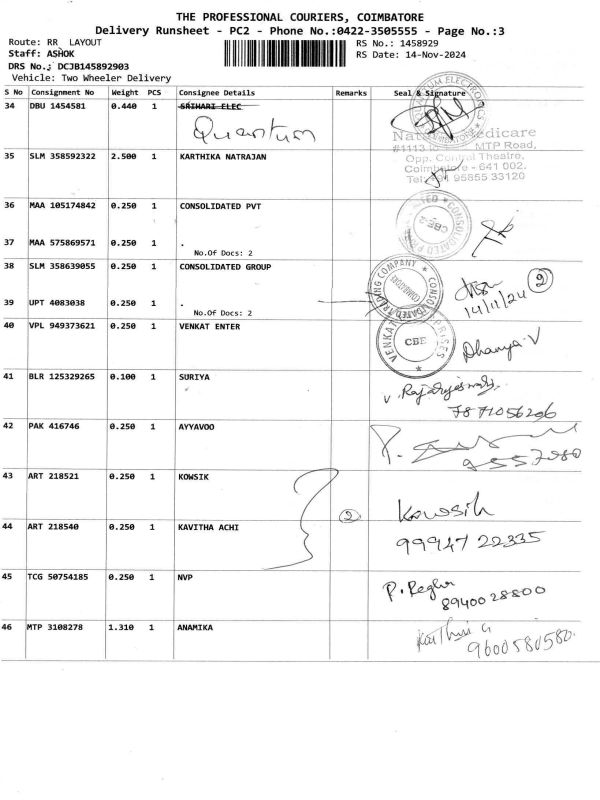 THE PROFESSIONAL COURIERS, COIMBATORE
Delivery Runsheet - PC2 - Phone No.:0422-3505555 - Page No.:3
Route: RR LAYOUT
RS No.: 1458929
Staff: ASHOK
RS Date: 14-Nov-2024
DRS No.: DCJB145892903
Vehicle: Two Wheeler Delivery
S No Consignment No Weight PCS Consignee Details Remarks Seal & Signature
34 DBU 1454581 0.440 1 SRIHARI ELEC
Quantum
MTP Road,
Opp. Central Theatre,
Coimbatore - 641 002.
95855 33120
35 SLM 358592322 2.500 1 KARTHIKA NATRAJAN
36 MAA 105174842 0.250 1 CONSOLIDATED PVT
CONSOLIDATED
CBE-2
37 MAA 575869571 0.250 1 .
No.Of Docs: 2
38 SLM 358639055 0.250 1 CONSOLIDATED GROUP
COMPANY
2
14/11/24
39 UPT 4083038 0.250 1 .
No.Of Docs: 2
40 VPL 949373621 0.250 1 VENKAT ENTER
CBE
Dhanya.V
41 BLR 125329265 0.100 1 SURIYA
V. Rajarajeswari
7871056206
42 PAK 416746 0.250 1 AYYAVOO
43 ART 218521 0.250 1 KOWSIK
2
Kowsik
99947 22335
44 ART 218540 0.250 1 KAVITHA ACHI
45 TCG 50754185 0.250 1 NVP
8940028800
46 MTP 3108278 1.310 1 ANAMIKA
9600580580